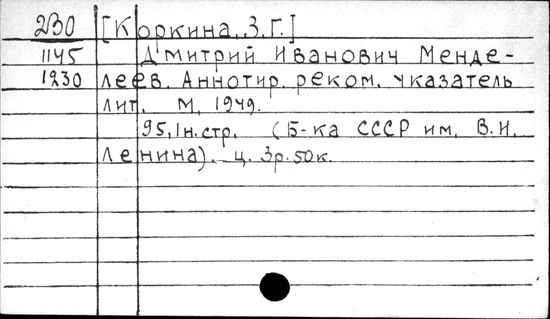 230 [Коркина, З.Г.]
1145 Дмитрий Иванович Менде-
1230 леев. Аннотир. реком. указатель
лит. М, 1949.
95, 1н.стр. (Б-ка СССР им. В.И.
Ленина). ц. 3р.50к.